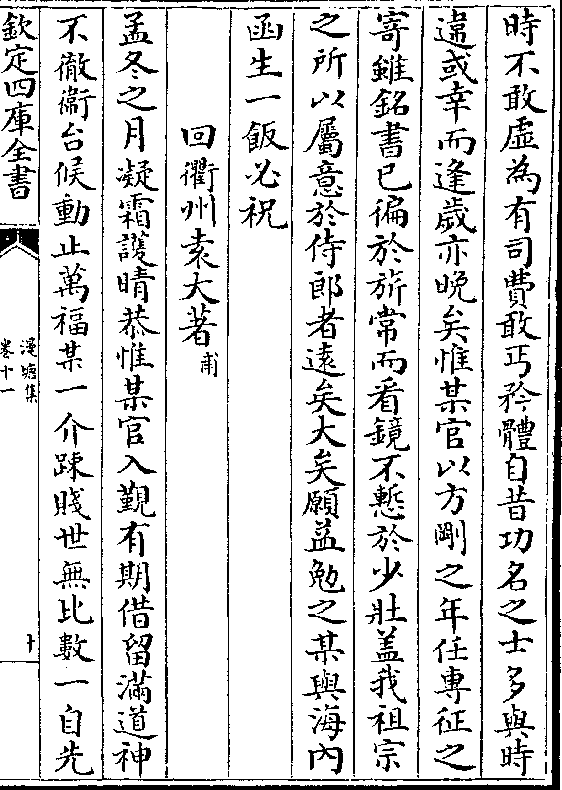 時不敢虚為有司費敢丐矜體自昔功名之士多與時
違或幸而逢歲亦晚矣惟某官以方剛之年任專征之
寄雖銘書已徧於旂常而看鏡不慙於少壯蓋我祖宗
之所以屬意於侍郎者遠矣大矣願益勉之某與海内
函生一飯必祝
回衢州袁大著甫
孟冬之月凝霜護晴恭惟某官入覲有期借留滿道神
不徹衛台候動止萬福某一介踈賤世無比數一自先
欽定四庫全書
漫塘集
卷十一
十